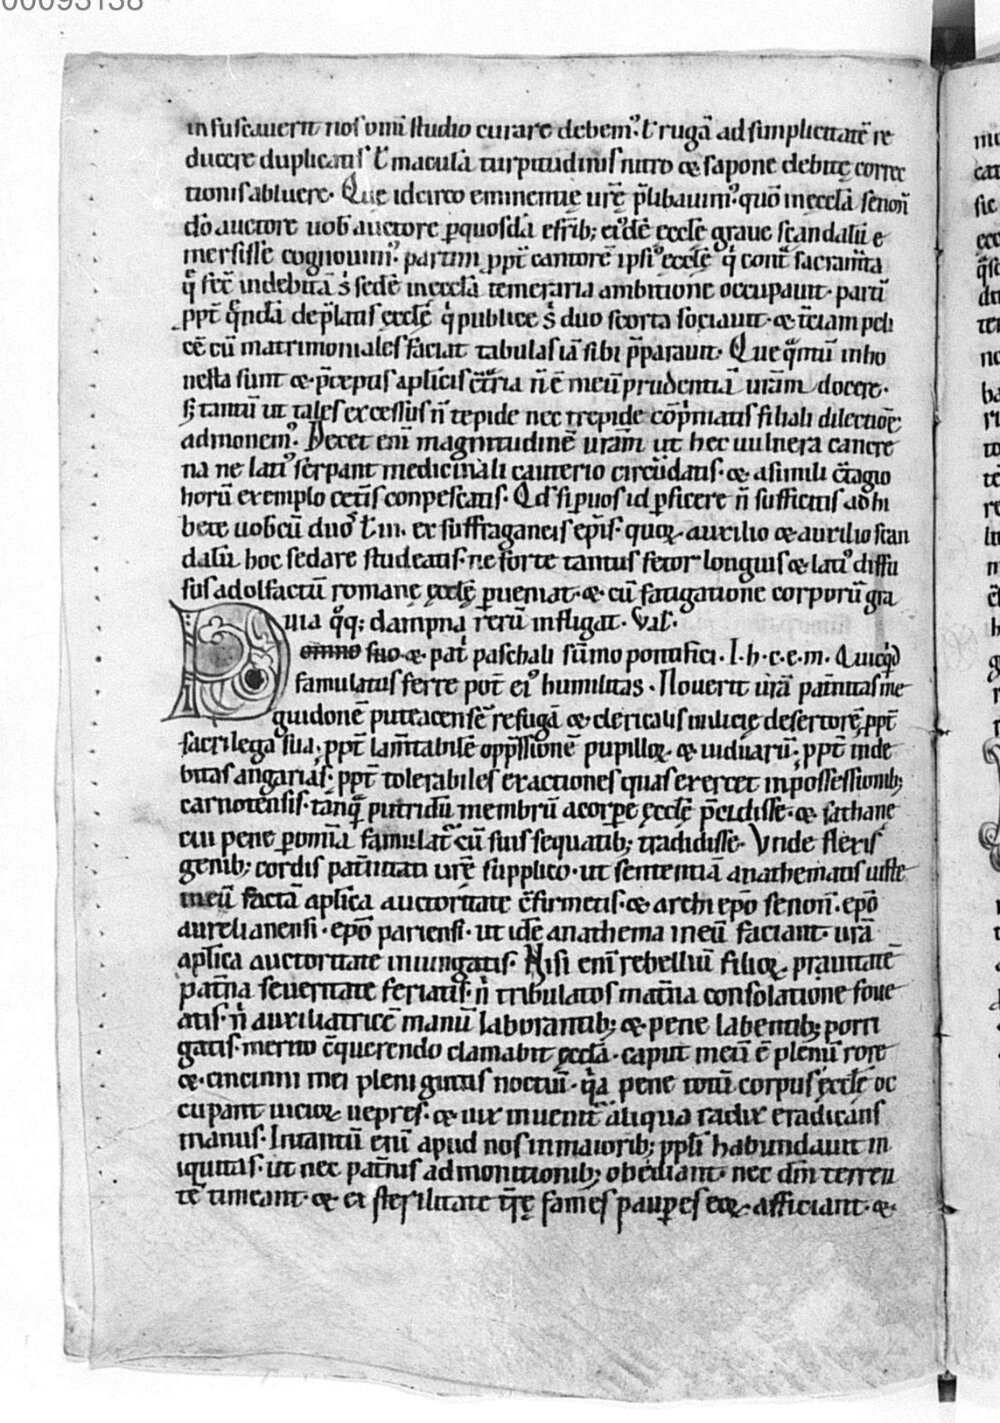 00093138
insuscauerit nos om̄i studio curare debem᷒. ł rugā ad simplicitatē re
ducere duplicatis ł maculā turpitudinis nitro & sapone debitę correc
tionis abluere. Que idcirco eminentię ur̄ę p̄libauim᷒. quō in eccl̄a senoń
dō auctore uob̄ auctore ꝑ quosdā cfr̄ib; ei᷒dē eccl̄ę graue scandalū e
mersisse cognouim᷒. partim ꝓpt̄ cantorē ipsi᷒ eccl̄ę qi cont̄ sacram̄ta
q̄ fec̄ indebitā s̄ sedē in eccl̄a temeraria ambitione occupauit. partī
ꝓpt̄ q̄ndā de p̄latis eccl̄ę qi publice s̄ duo scorta sociauit. & t̄ciam peli
cē cū matrimoniales faciat tabulas iā sibi p̄parauit. Que qm̄ inho
nesta sunt & p̄ceptis apl̄icis c̄t̄ria n̄ ē meū prudentiā uram̄ docere.
s; tantū ut tales excessus n̄ tepide nec trepide cōp̄matis filiali dilectiōe
admonem᷒. Decet eni magnitudinē uram̄ ut hec uulnera cancre
na ne lati᷒ serpant medicinali cauterio circūdatis. & a simili c̄tagio
horū exemplo cet̄is conpescatis. Qd̄ si ꝑ uos id ꝑficere n̄ sufficitis adhi
bete uobcū duos ł .iii. ex suffraganeis ep̄is. quoꝝ auxilio & auxilio scan
dalū hoc sedare studeatis. ne forte tantus fetor longius & lati᷒ diffu
sus ad olfactū romanę eccl̄ę ꝑueniat. & cū fatigatione corporū gra
uia q̄q; dampna rerū infligat. Val̄.
Domno suo & pat̄ paschali sūmo pontifici. I. h. c. e. m. Quicq̄d
famulatus ferre pot̄ ei᷒ humilitas. Nouerit ur̄a pat̄nitas me
guidonē puteacensē refugā & clericalis milicię desertorē ꝓpt̄
sacrilega sua; ꝓpt̄ lam̄tabilē opp̄ssionē pupilloꝝ & uiduarū; ꝓpt̄ inde
bitas angarias; ꝓpt̄ tolerabiles exactiones quas exercet in possessionib;
carnotensis. tanq̄ putridū membrū a corpe eccl̄ę p̄cidisse. & sathanę
cui pene ꝑ om̄ia famulat̄ cū suis sequatib; tradidisse. Vnde flexis
genib; cordis pat̄nitati ur̄ę supplico. ut sententiā anathematis iuste
in eū factā apl̄ica auctoritate c̄firmetis. & archiepō senoń. epō
aurelianensi. epō pariensi. ut idē anathema in eū faciant. ur̄a
apl̄ica auctoritate iniungatis. Nisi enī rebelliū filioꝝ prauitatē
pat̄na seueritate feriatis. ni tribulatos mat̄na consolatione foue
atis. ni auxiliatricē manū laborantib; & pene labentib; porri
gatis. merito c̄querendo clamabit eccl̄a. caput meū ē plenū rore
& cincinni mei pleni guttis noctiū. qia pene totū corpus eccl̄ę oc
cupant uicioꝝ uepres. & uix inuenit̄ aliqua radix eradicans
manus. In tantū enī apud nos in maiorib; ppl̄i habundauit in
iquitas. ut nec pat̄nis admonitionib; obediant. nec dm̄ terren
tē timeant. & ei sterilitate t̄rę fames pauꝑes eoꝝ afficiant. &